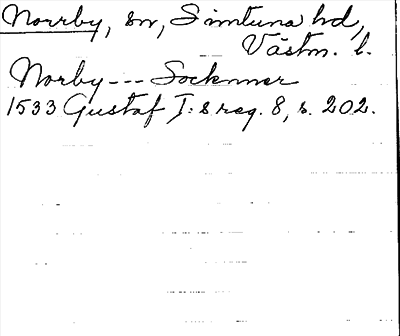 Norrby, sn, Simtuna hd,
Västm. l.
Norby --- Socknner
1533 Gustaf I:s reg. 8, s. 202.